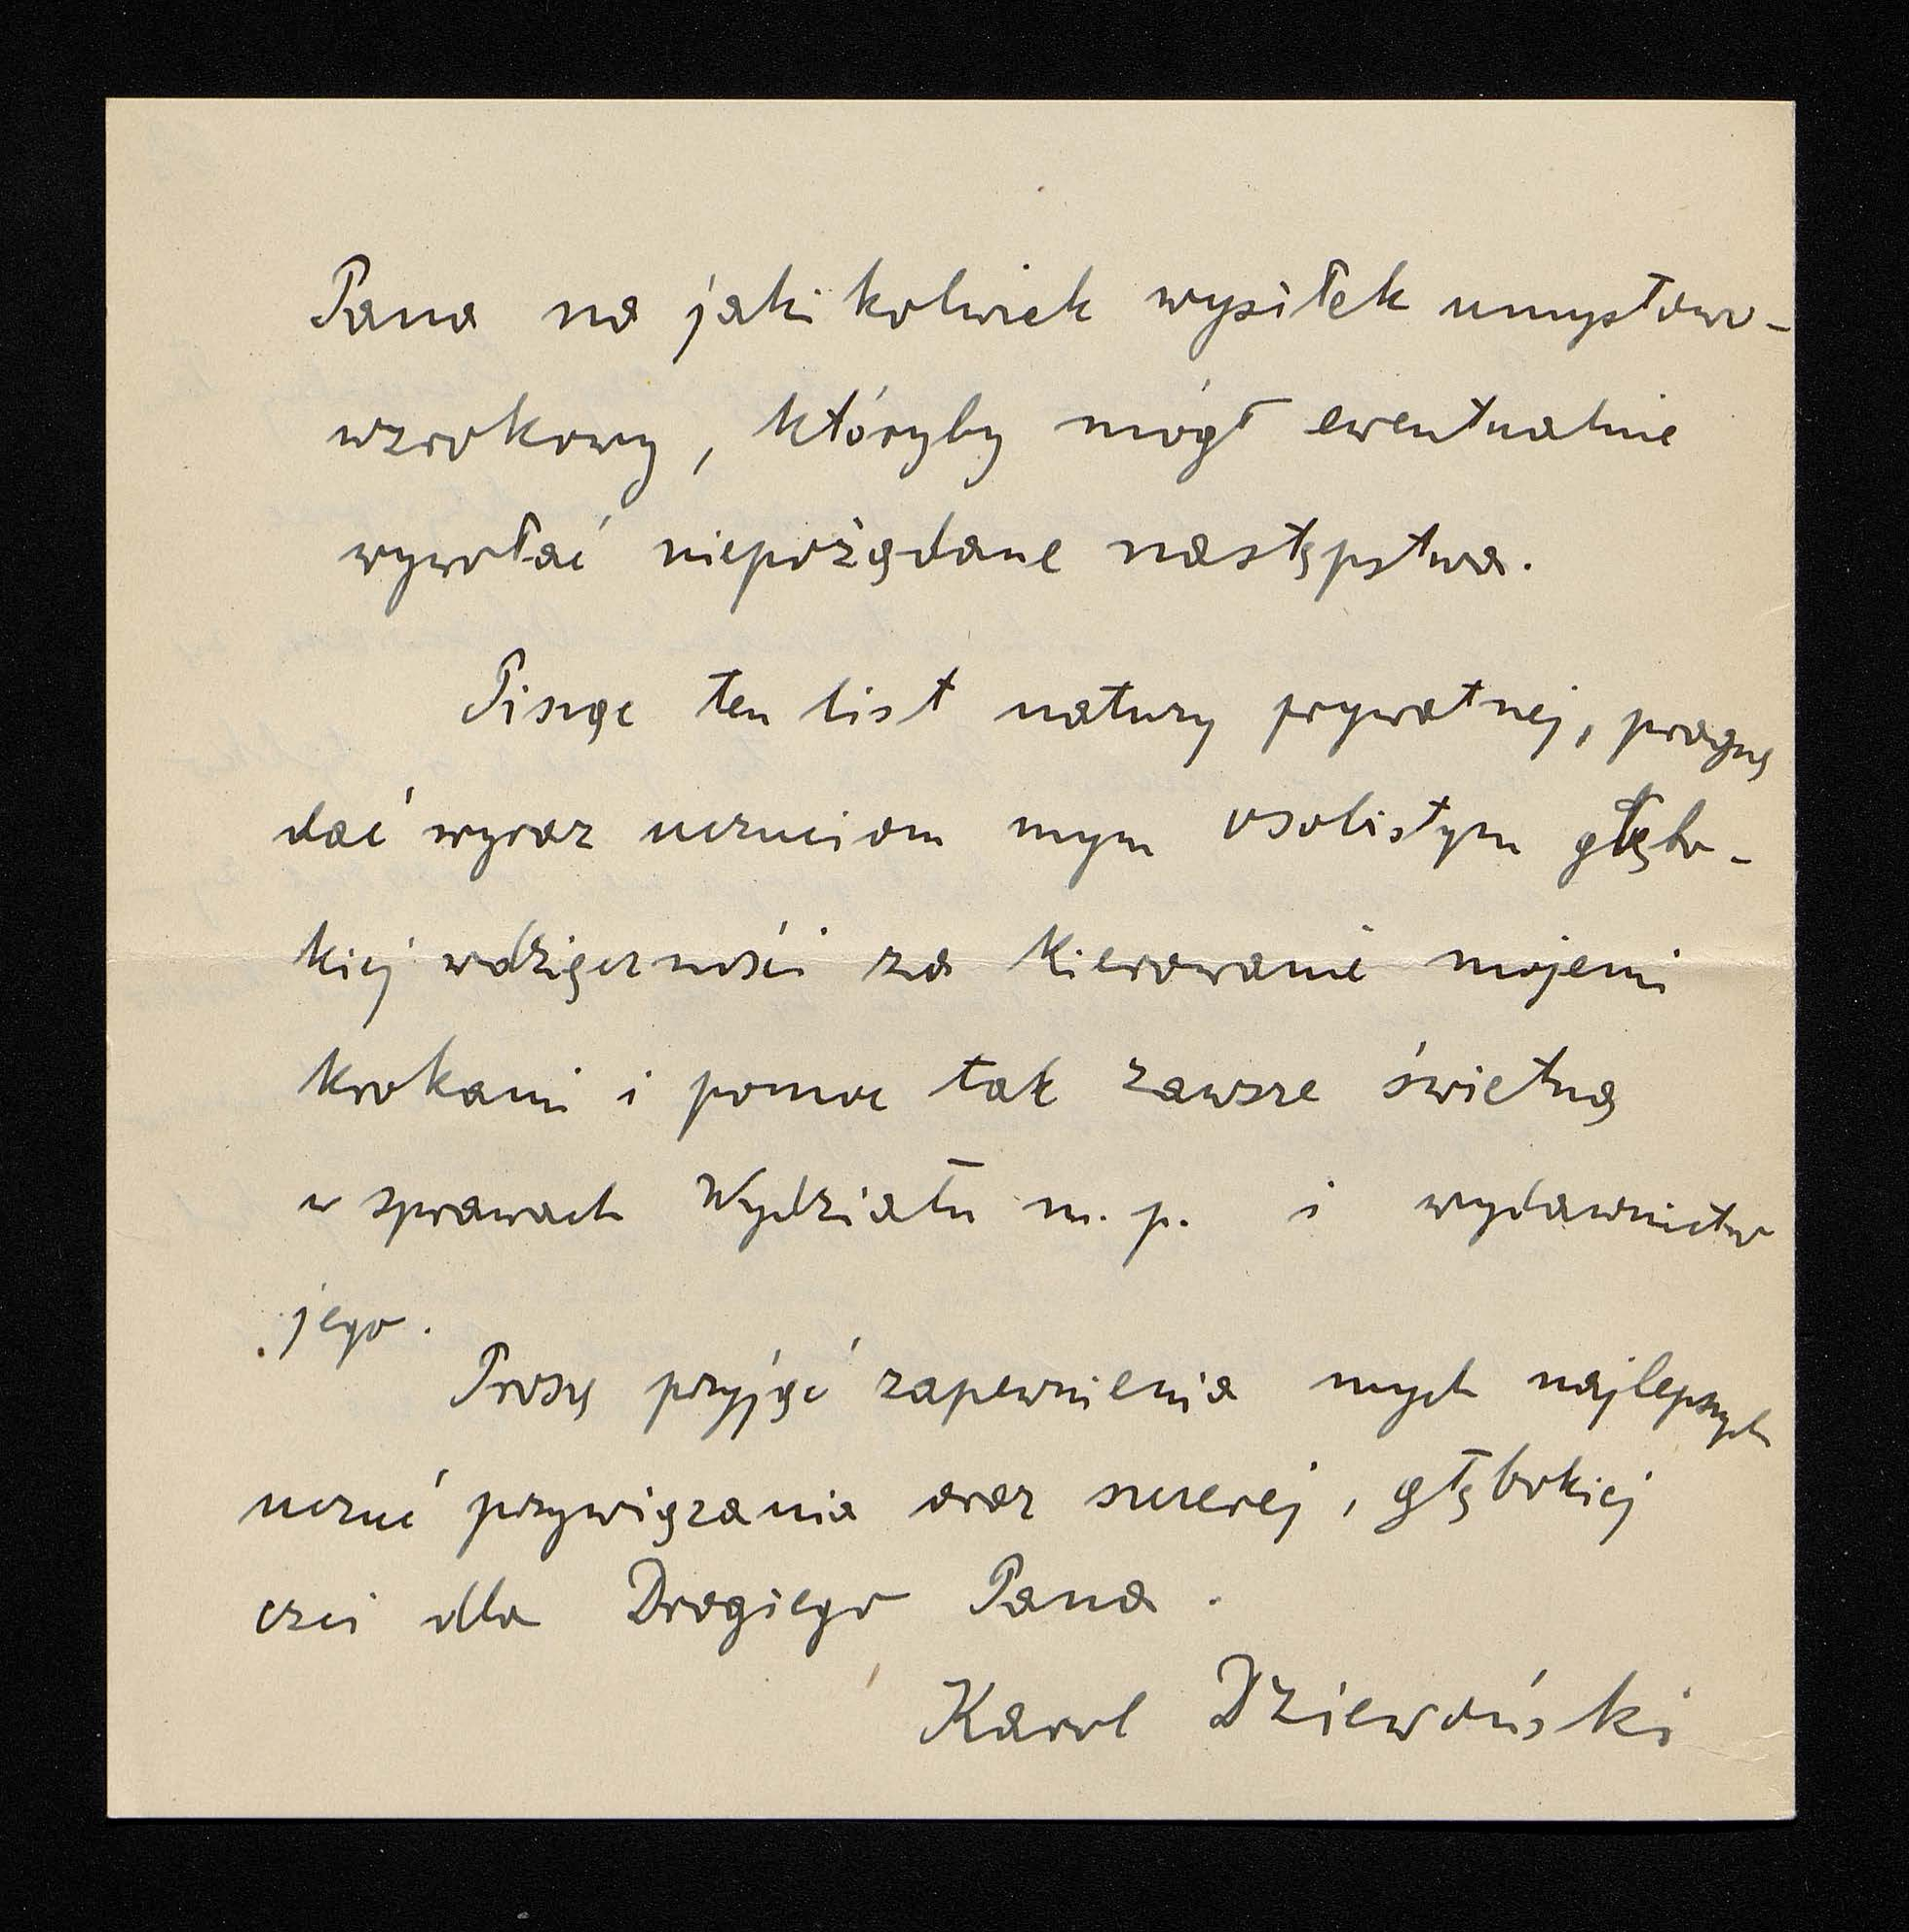 Pana na jakikolwiek wysiłek umysłowo-
wzrokowy, któryby mógł ewentualnie
wywołać niepożądane następstwa.
Pisząc ten list natury prywatnej, pragnę
dać wyraz uczuciom mym osobistym głębo-
kiej wdzięczności za kierowanie mojemi
krokami i pomoc tak zawsze świetną
w sprawach Wydziału m. p. i wydawnictw
jego.
Proszę przyjąć zapewnienia mych najlepszych
uczuć przywiązania oraz szczerej, głębokiej
czci dla Drogiego Pana.
Karol Dziewoński